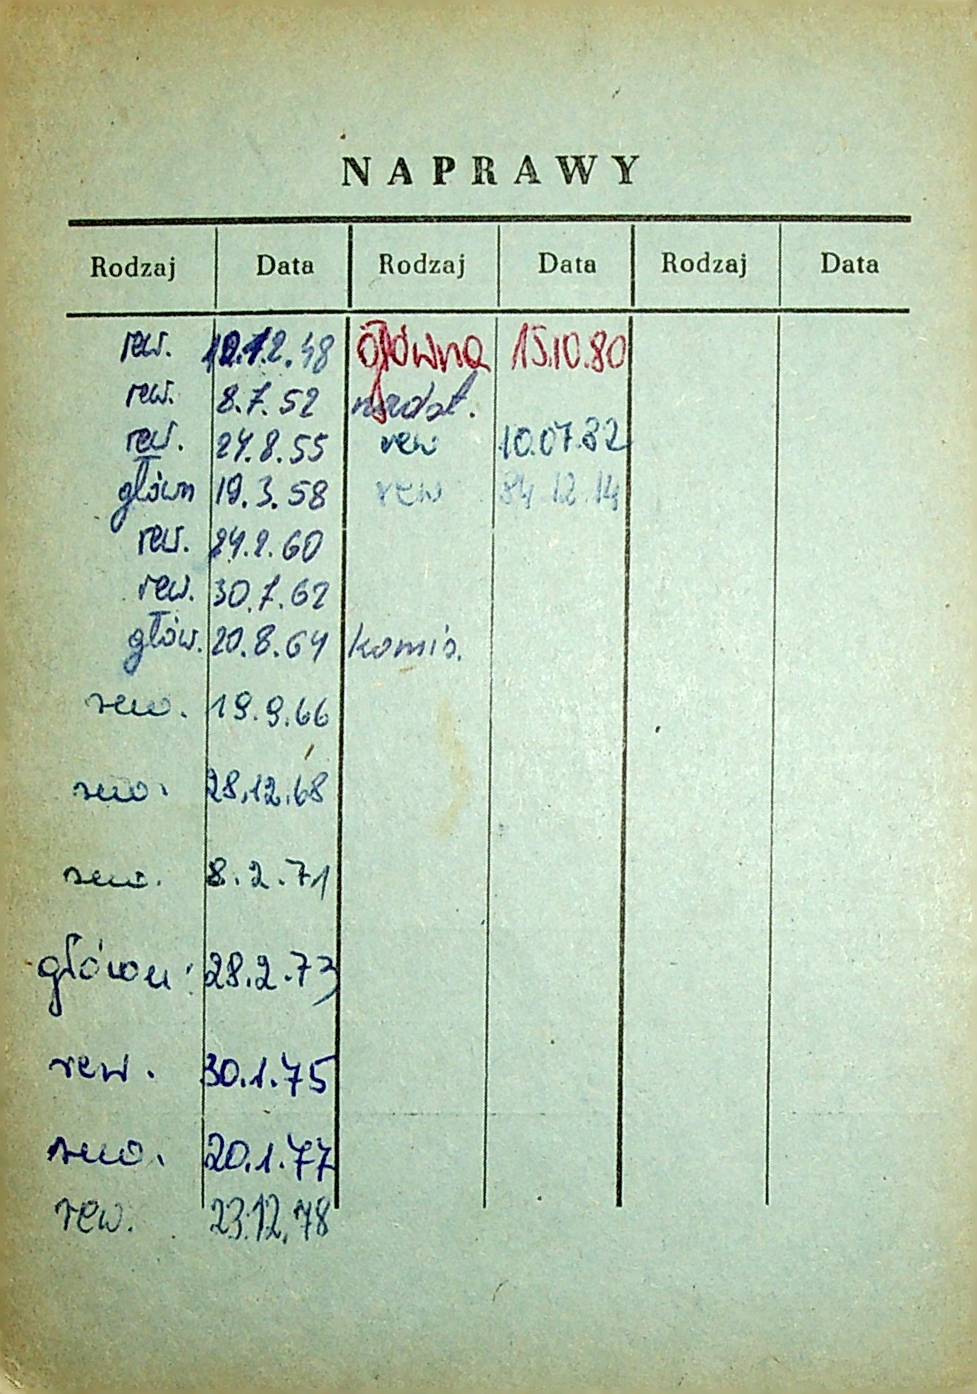 NAPRAWY
Rodzaj Data Rodzaj Data Rodzaj Data
rew. 12.12.48 główna 15.10.80
rew. 8.7.52
rew. 24.8.55 rew 10.07.82
główn 19.3.58 rew 84.12.14
rew. 24.2.60
rew. 30.7.62
głów. 20.8.64 komis.
rew. 19.9.66
rew. 28.12.68
rew. 8.2.71
główn. 28.2.73
rew. 30.1.75
rew. 20.1.77
rew. 23.12.78